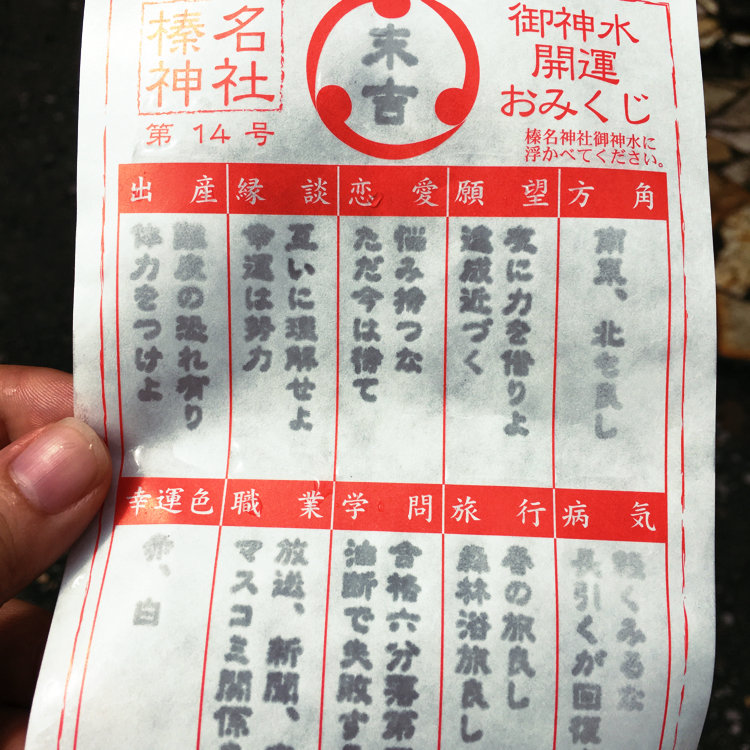 御神水
開運
おみくじ
榛名神社御神水に
浮かべてください。
末吉
榛名
神社
第14号
方角
南東、北も良し
願望
友に力を借りよ
達成近づく
恋愛
悩み持つな
ただ今は待て
縁談
互いに理解せよ
幸運は努力
出産
難産の恐れ有り
体力をつけよ
病気
軽くみるな
長引くが回復
旅行
春の旅良し
森林浴旅良し
学問
合格六分落第
油断で失敗す
職業
放送、新聞、
マスコミ関係
幸運色
赤、白